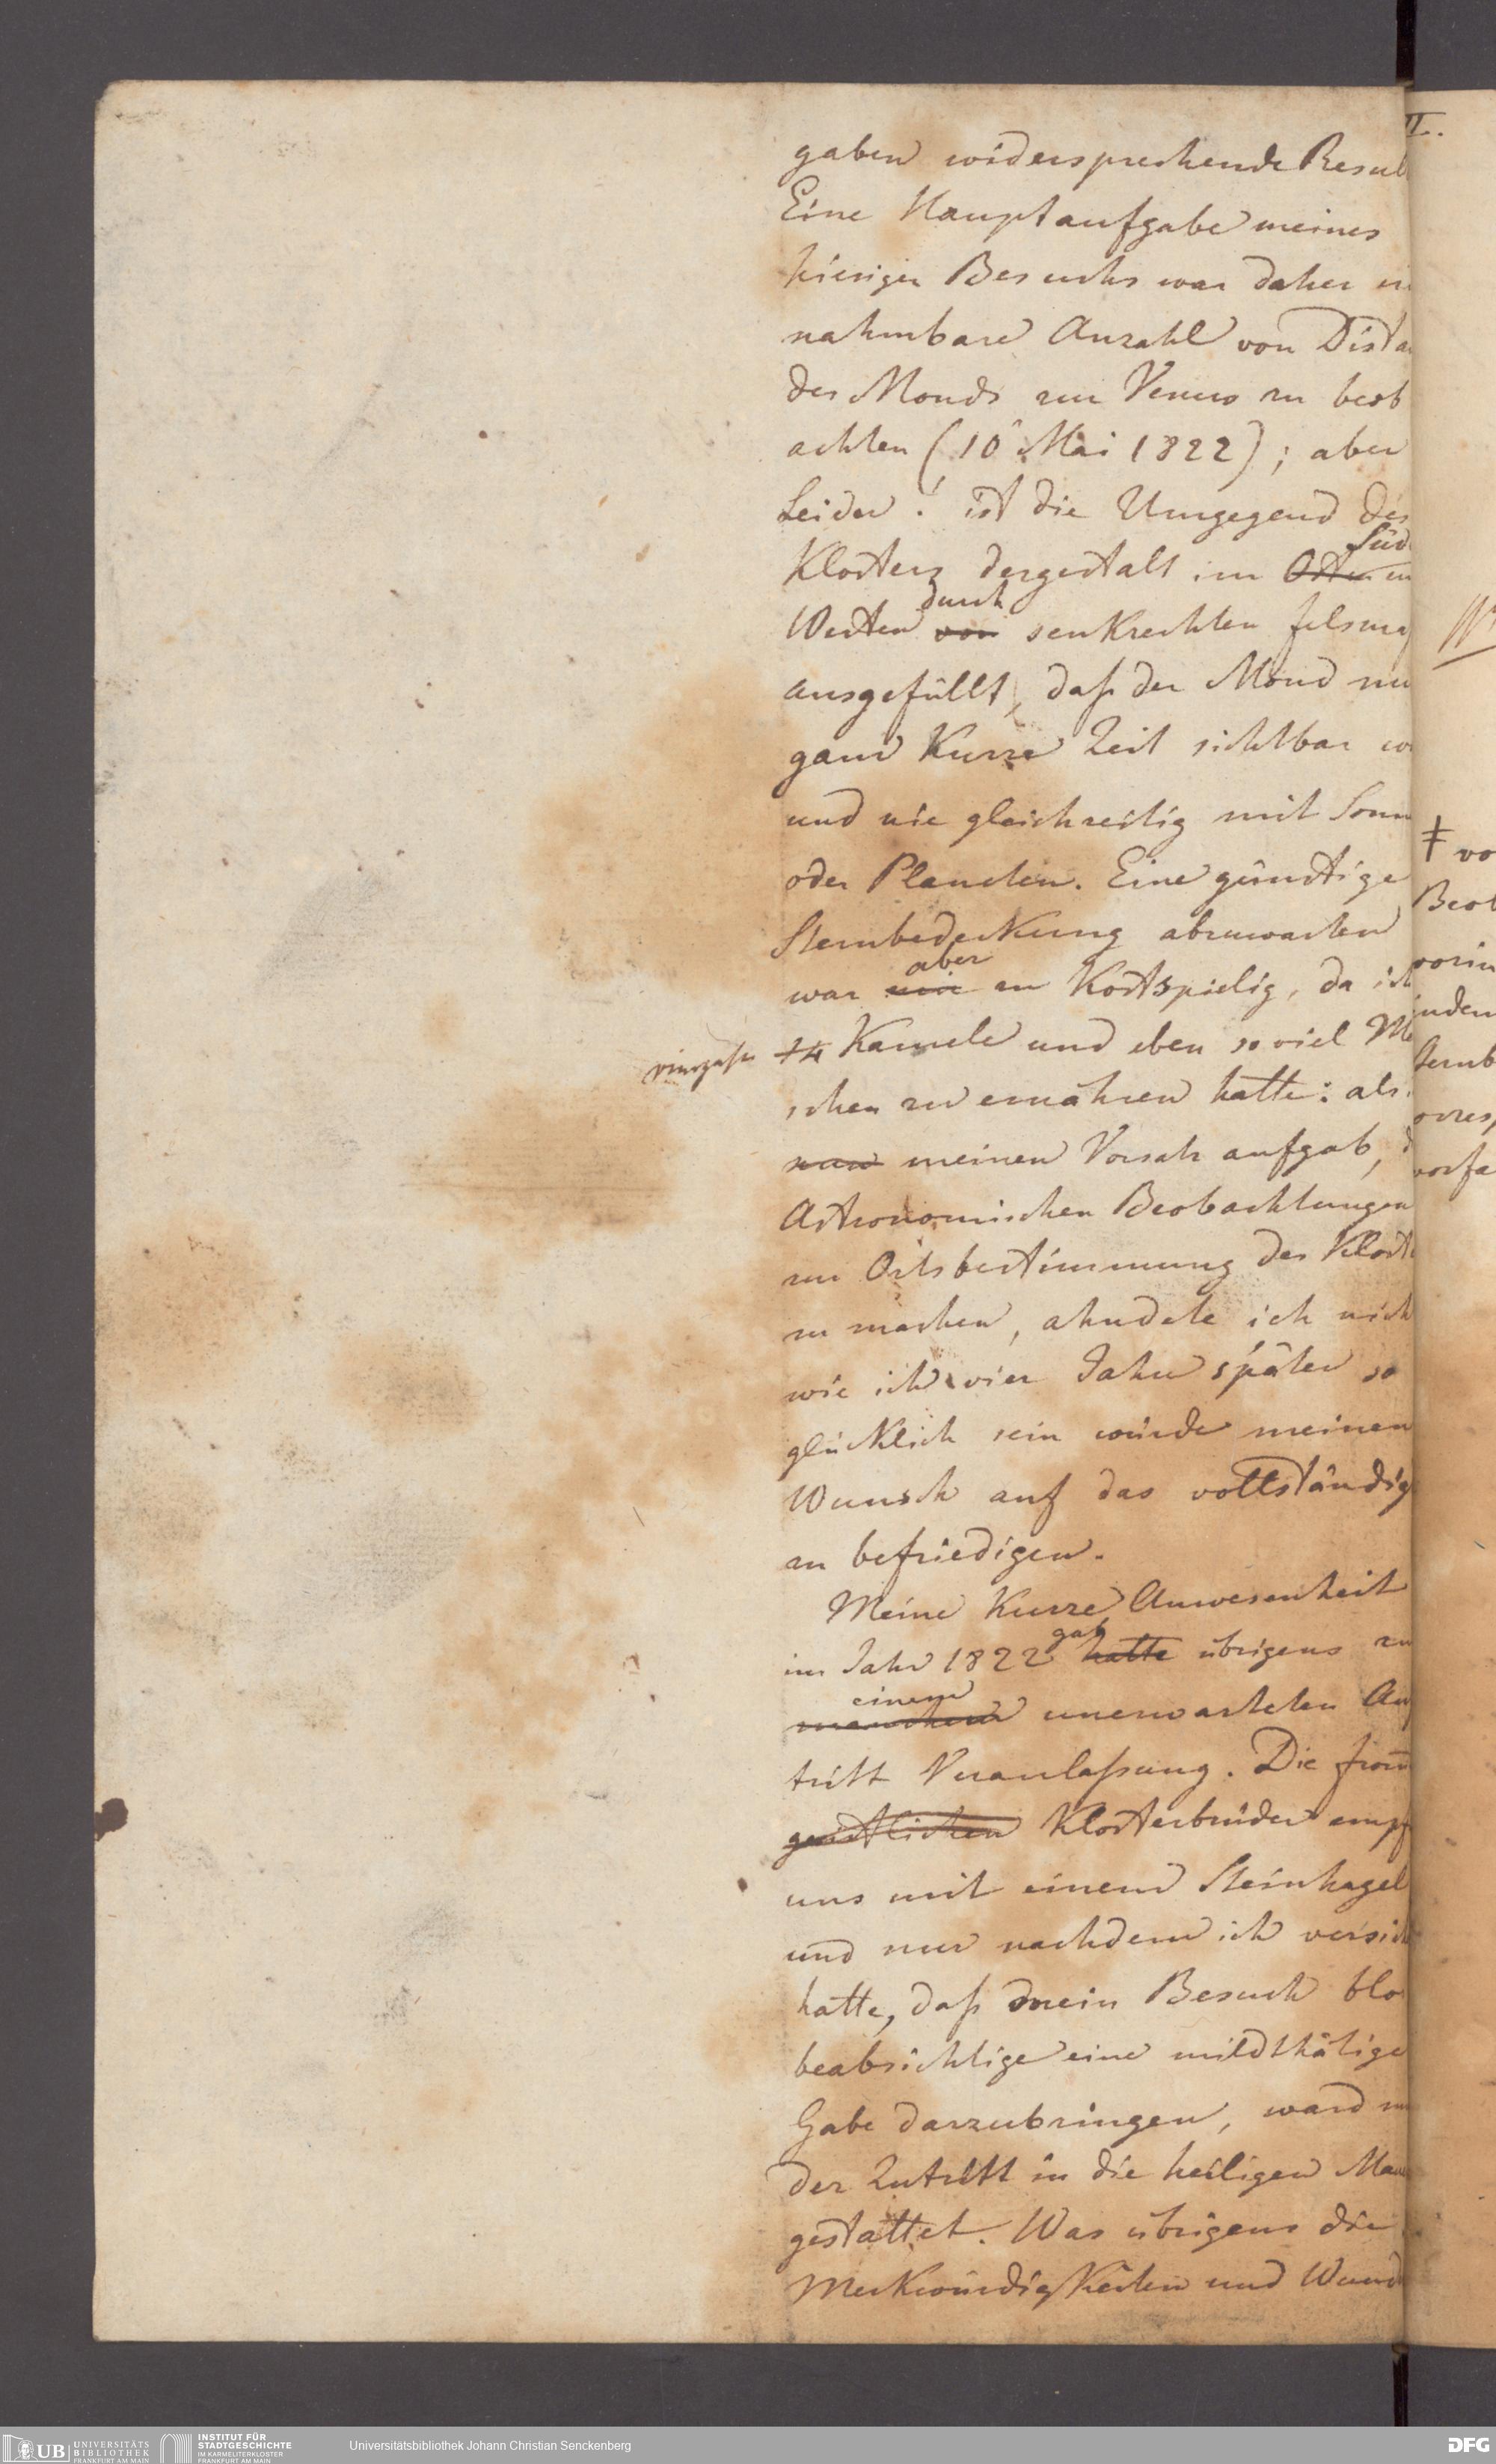 gaben widersprechende Resul
Eine Hauptaufgabe meines
hiesigen Besuchs war daher ei
nahmbare Anzahl von Dista
des Monds zur Venus zu beob
achten (10 Mai 1822); aber
Leider! ist die Umgegend des
Süd
Klosters dergestalt im Osten
durch
Westen von senkrechten felsma
ausgefüllt, daß der Mond nu
ganz Kurze Zeit sichtbar w
und nie gleichzeitig mit Sonn
oder Planeten. Eine günstige
Sternbedeckung abzuwarten
aber
war mir zu Kostspielig, da ich
vierzehn 14 Kamele und eben so viel Me
schen zu ernähren hatte: als
nun meinen Vorsatz aufgab, d
Astronomischen Beobachtungen
zur Ortsbestimmung des Klost
zu machen, ahndete ich nich
wie ich vier Jahre später so
glücklich sein würde meinen
Wunsch auf das vollständig
zu befriedigen.
Meine Kurze Anwesenheit
gab
im Jahr 1822 hatte übrigens zu
einem
manchem unerwarteten Auf
tritt Veranlaßung. Die from
geistlichen Klosterbrüder empf
uns mit einem Steinhagel
und nur nachdem ich versich
hatte, daß mein Besuch blo
beabsichtige eine mildthätige
Gabe darzubringen, ward
der Zutritt in die heiligen Mau
gestattet. Was übrigens die
Merkwürdigkeiten und Wund
II.
‡ vo
Beob
vorin
inden
Sternb
orres
vorfa
UB UNIVERSITÄTS
BIBLIOTHEK
FRANKFURT AM MAIN
INSTITUT FÜR
STADTGESCHICHTE
IM KARMELITERKLOSTER
FRANKFURT AM MAIN
Universitätsbibliothek Johann Christian Senckenberg
DFG